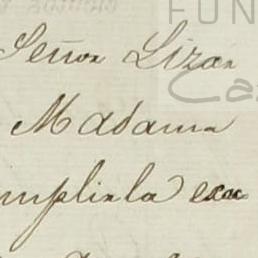 FUN
Señor Lizan
Ca
Madama
mplirla exac